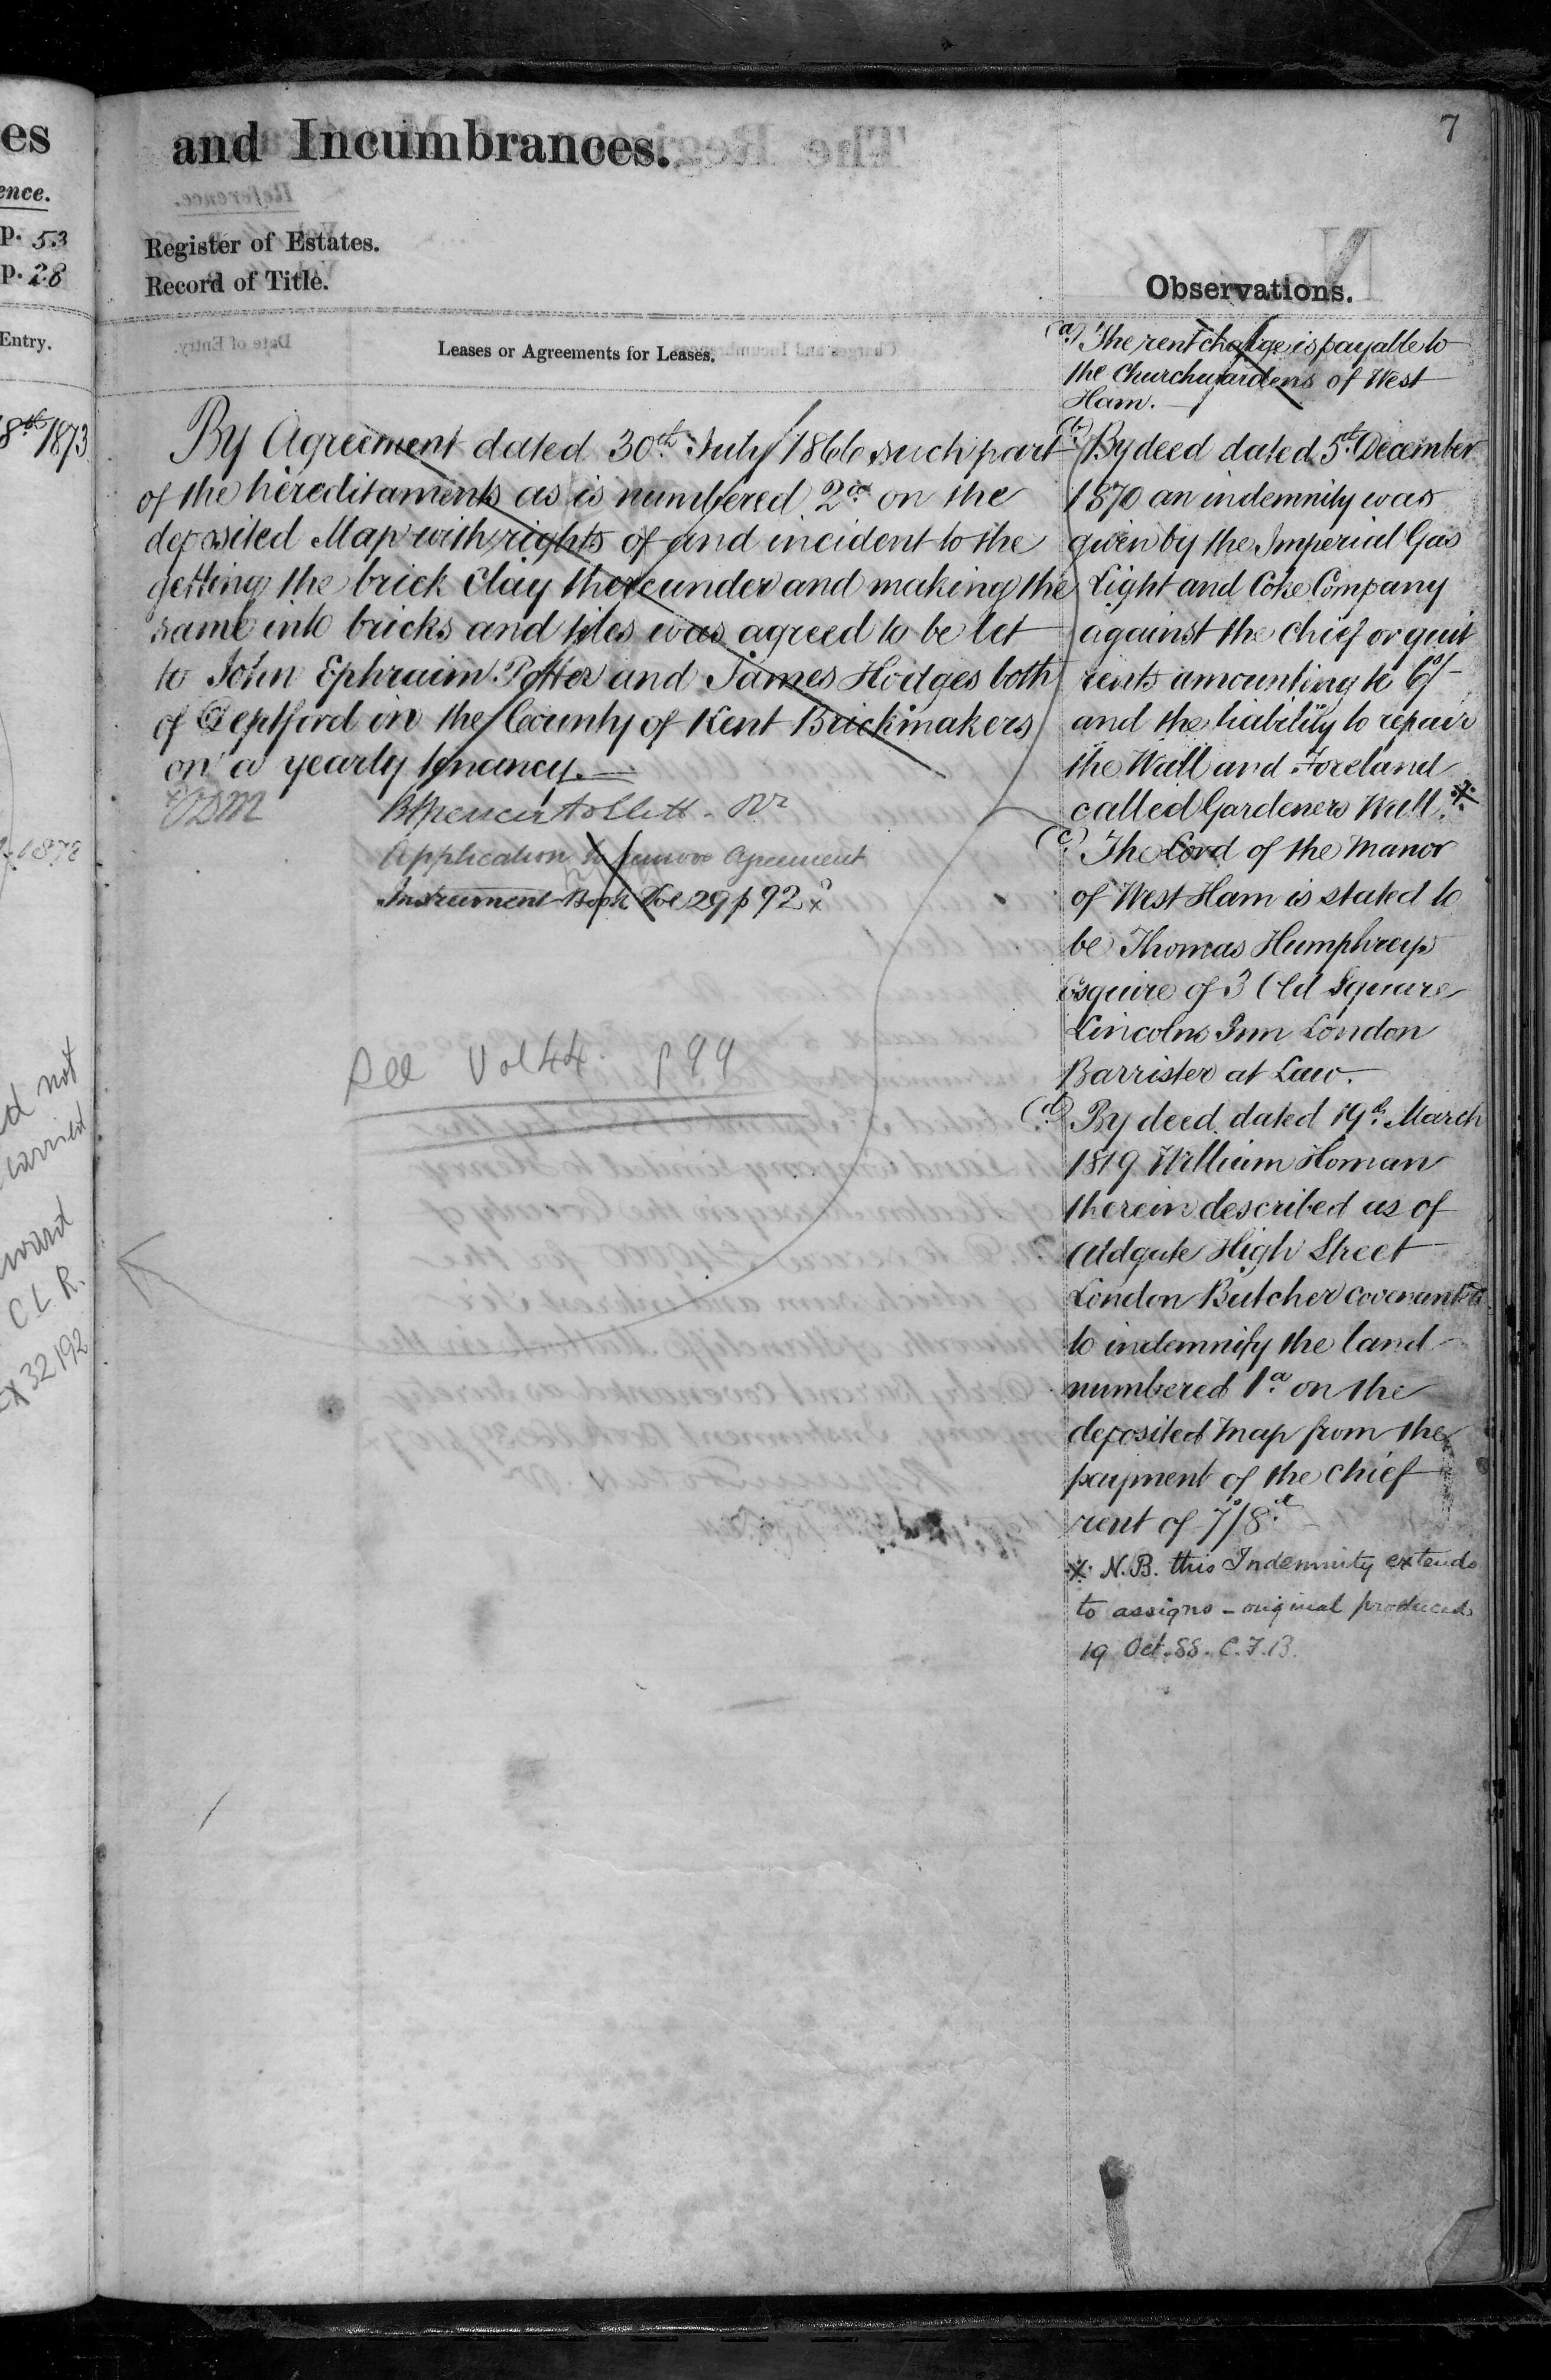 es
ence.
p. 53
p. 28
Entry.
8th 1873
1878
d not
carried
ward
C.L.R.
EX 32192
7
and Incumbrances.
Register of Estates.
Record of Title.
Leases or Agreements for Leases.
By Agreement dated 30th July 1866 such part
of the hereditaments as is numbered 2a on the
deposited Map with rights of and incident to the
getting the brick clay thereunder and making the
same into bricks and tiles was agreed to be let
to John Ephraim Potter and James Hodges both
of Deptford in the County of Kent Brickmakers
on a yearly tenancy.
Application to remove Agreement
Instrument Book Vol 29 p 92
See Vol 44. p 99
Observations.
(a) The rent charge is payable to
the Churchwardens of West
Ham.
(b) By deed dated 5th December
1870 an indemnity was
given by the Imperial Gas
Light and Coke Company
against the chief or quit
rents amounting to 6s/-
and the liability to repair
the Wall and Foreland
called Gardeners Wall. *
(c) The Lord of the Manor
of West Ham is stated to
be Thomas Humphreys
Esquire of 3 Old Square
Lincolns Inn London
Barrister at Law.
(d) By deed dated 19th March
1819 William Homan
therein described as of
Aldgate High Street
London Butcher covenanted
to indemnify the land
numbered 1a on the
deposited map from the
payment of the chief
rent of 7s/8d
* N.B. this Indemnity extends
to assigns - original produced
19 Oct. 88. C.F.B.